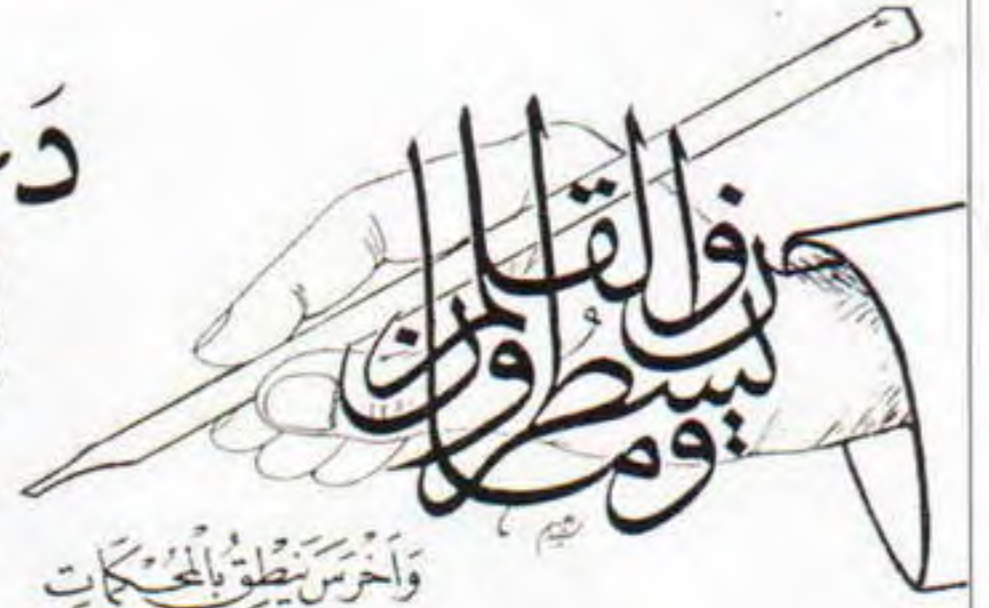 ن والقلم وما يسطرون
وَاَخْرَسَ يَنْطِقُ بِالْمُحْكَمَاتِ